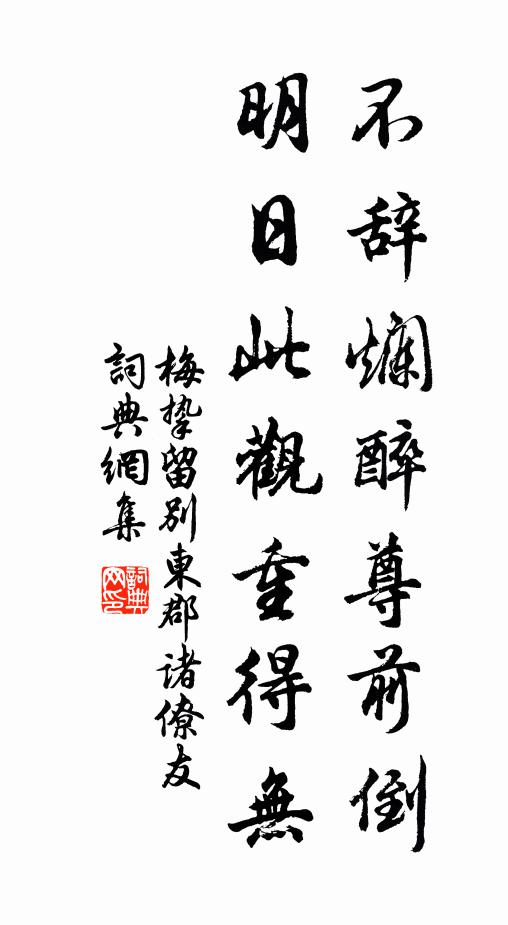 不辞爛醉尊前倒
明日此觀重得無
梅挚留别東郡诸僚友
詞典網集
詞典网印